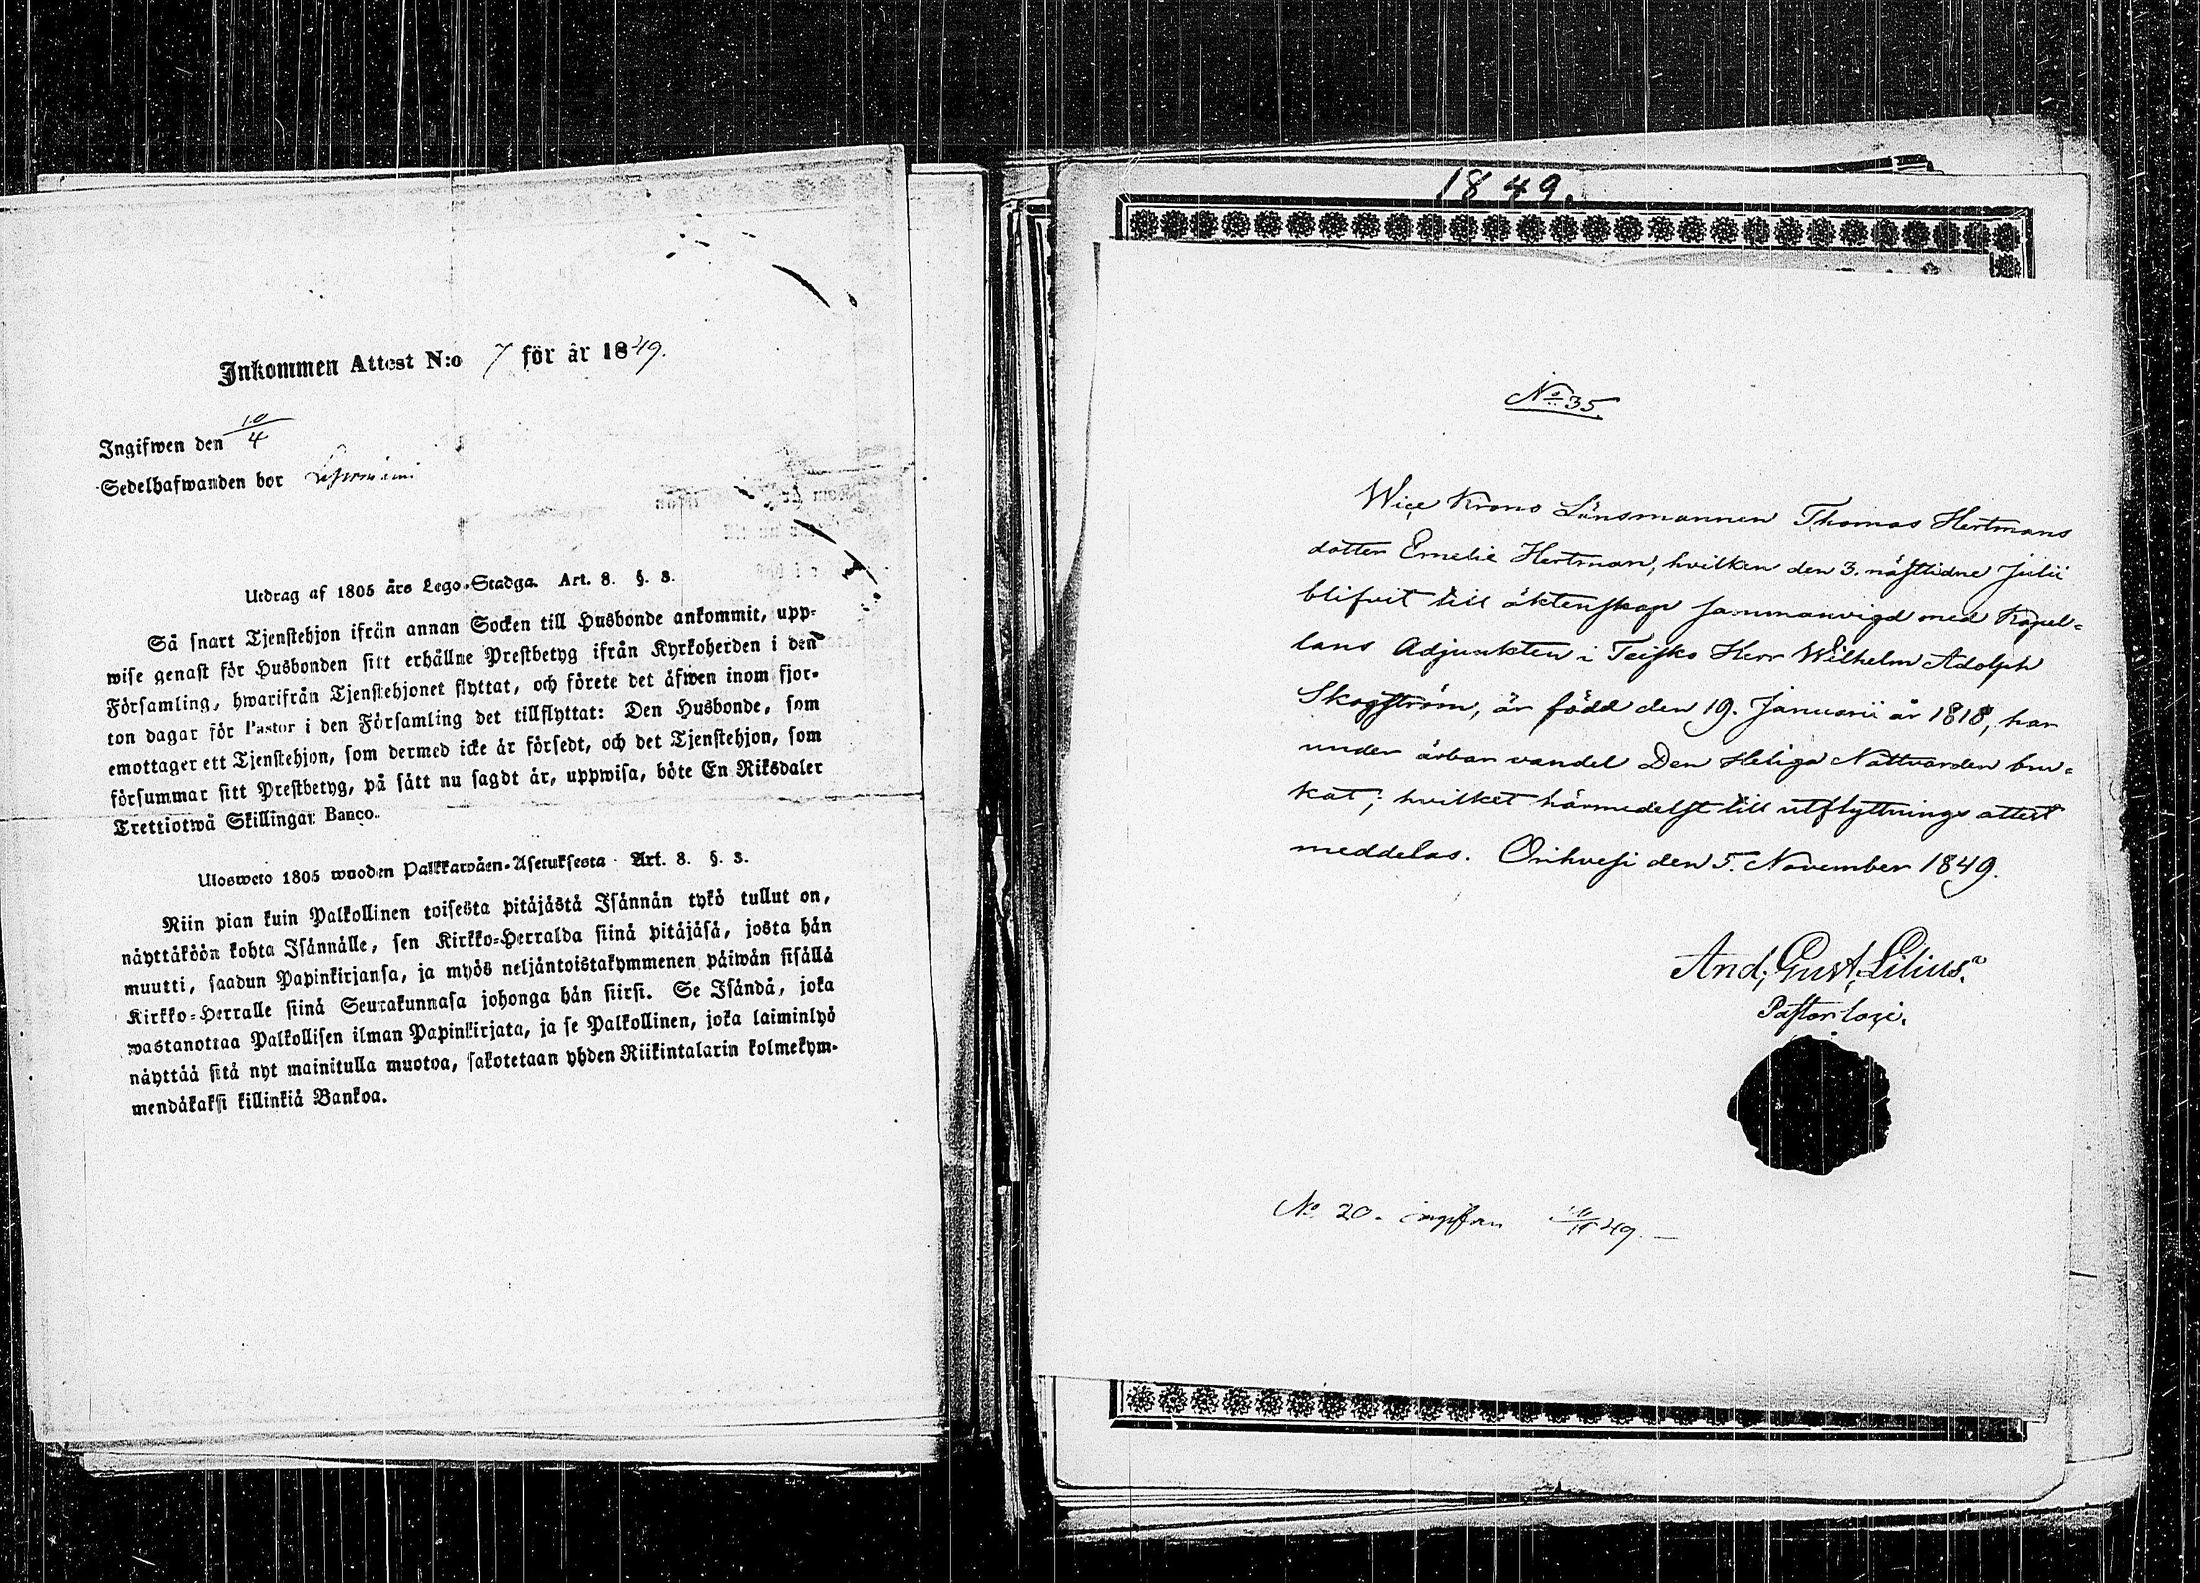 Inkommen Attest N:o 7 för år 1849.
Ingifwen den 10/4
Sedelhafwanden bor
Utdrag af 1805 års Lego-Stadga. Art. 8. §. 3.
Så snart Tjenstehjon ifrån annan Socken till Husbonde ankommit, upp-
wise genast för Husbonden sitt erhållne Prestbetyg ifrån Kyrkoherden i den
Församling, hwarifrån Tjenstehjonet flyttat, och förete det äfwen inom fjor-
ton dagar för Pastor i den Församling det tillflyttat: Den Husbonde, som
emottager ett Tjenstehjon, som dermed icke är försedt, och det Tjenstehjon, som
försummar sitt Prestbetyg, på sätt nu sagdt är, uppwisa, böte En Riksdaler
Trettiotwå Skillingar Banco.
Ulosweto 1805 wuoden Palkkawäen-Asetuksesta Art. 8. §. 3.
Niin pian kuin Palkollinen toisesta pitäjästä Isännän tykö tullut on,
näyttäköön kohta Isännälle, sen Kirkko-Herralda siinä pitäjäsä, josta hän
muutti, saadun Papinkirjansa, ja myös neljäntoistakymmenen päiwän sisällä
Kirkko-Herralle siinä Seurakunnasa johonga hän siirsi. Se Isändä, joka
wastanottaa Palkollisen ilman Papinkirjata, ja se Palkollinen, joka laiminlyö
näyttää sitä nyt mainitulla muotoa, sakotetaan yhden Riikintalarin kolmekym-
mendäkaksi killinkiä Bankoa.
1849.
No 35.
Wice Krono Länsmannen Thomas Hertmans
dotter Emelie Hertman, hvilken den 3. nästlidne Julii
blifvit till äktenskap sammanvigd med Kapel-
lans Adjunkten i Teisko Herr Wilhelm Adolph
Skogström, är född den 19. Januarii år 1818, har
under ärbar vandel Den Heliga Nattvarden bru-
kat; hvilket härmedelst till utflyttnings attest
meddelas. Orihvesi den 5. November 1849.
And. Gust. Lilius.
Pastor loci.
No 20. ingifven 10/11 49.